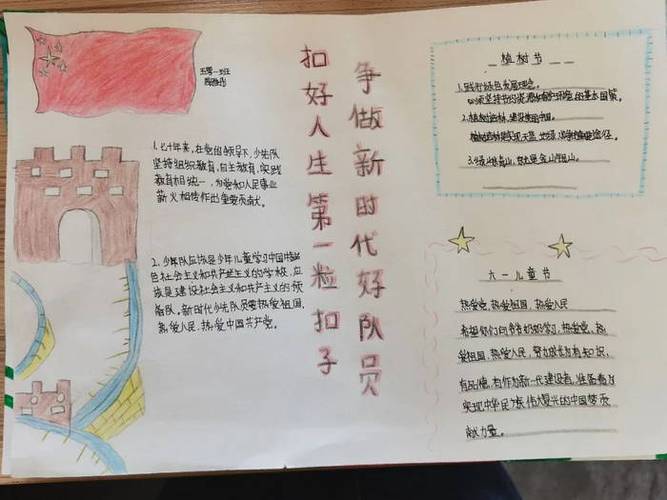 扣好人生第一粒扣子
争做新时代好队员
1.七十年来,在党的领导下,少先队
坚持组织教育,自主教育,实践
教育相统一,为党和人民事业
薪火相传作出重要贡献。
2.少年队应该是少年儿童学习中国特
色社会主义和共产主义的学校,应
该是建设社会主义和共产主义的预
备队。新时代少先队员要热爱祖国,
热爱人民,热爱中国共产党。
植树节
1.践行绿色发展理念,
必须坚持节约资源和保护环境的基本国策。
2.植树造林,
3.绿水青山,就是金山银山。
六一儿童节
热爱党,热爱祖国,热爱人民
学习,热爱党,热
爱祖国,热爱人民,努力成长为有知识,
有品德,有作为新一代建设者,准备着为
实现中华民族伟大复兴的中国梦贡
献力量。